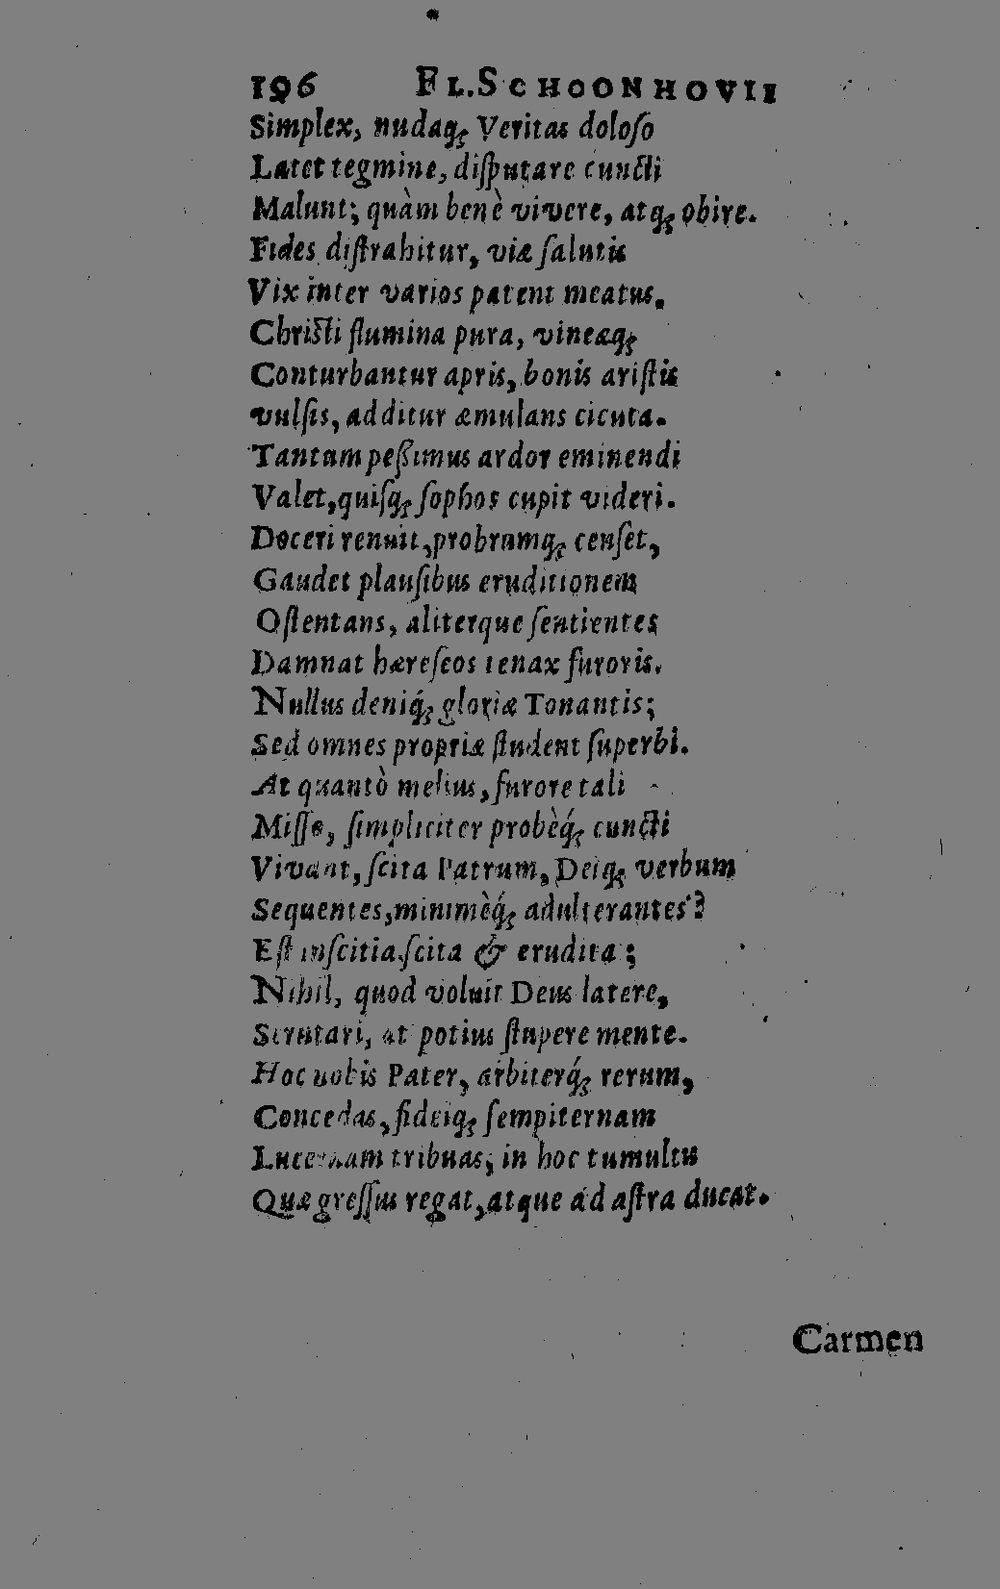 196 FL. SCHOONHOVII
Simplex, nudaq; Veritas doloso
Latet tegmine, disputare cuncti
Malunt; quàm benè vivere, atq; obire.
Fides distrahitur, viæ salutis
Vix inter varios patent meatus.
Christi flumina pura, vineæq;
Conturbantur apris, bonis aristis
vulsis, additur æmulans cicuta.
Tantum peßimus ardor eminendi
Valet, quisq; sophos cupit videri.
Doceri renuit, probrumq; censet,
Gaudet plausibus eruditionem
Ostentans, aliterque sentientes
Damnat hæreseos tenax furoris.
Nullus deniq́; gloriæ Tonantis;
Sed omnes propriæ student superbi.
At quantò melius, furore tali
Misso, simpliciter probèq́; cuncti
Vivant, scita Patrum, Deiq; verbum
Sequentes, minimèq́; adulterantes?
Est inscitia scita & erudita;
Nihil, quod voluit Deus latere,
Scrutari, at potius stupere mente.
Hoc nobis Pater, arbiterq́; rerum,
Concedas, fideiq; sempiternam
Lucernam tribuas; in hoc tumultu
Quæ gressus regat, atque ad astra ducat.
Carmen